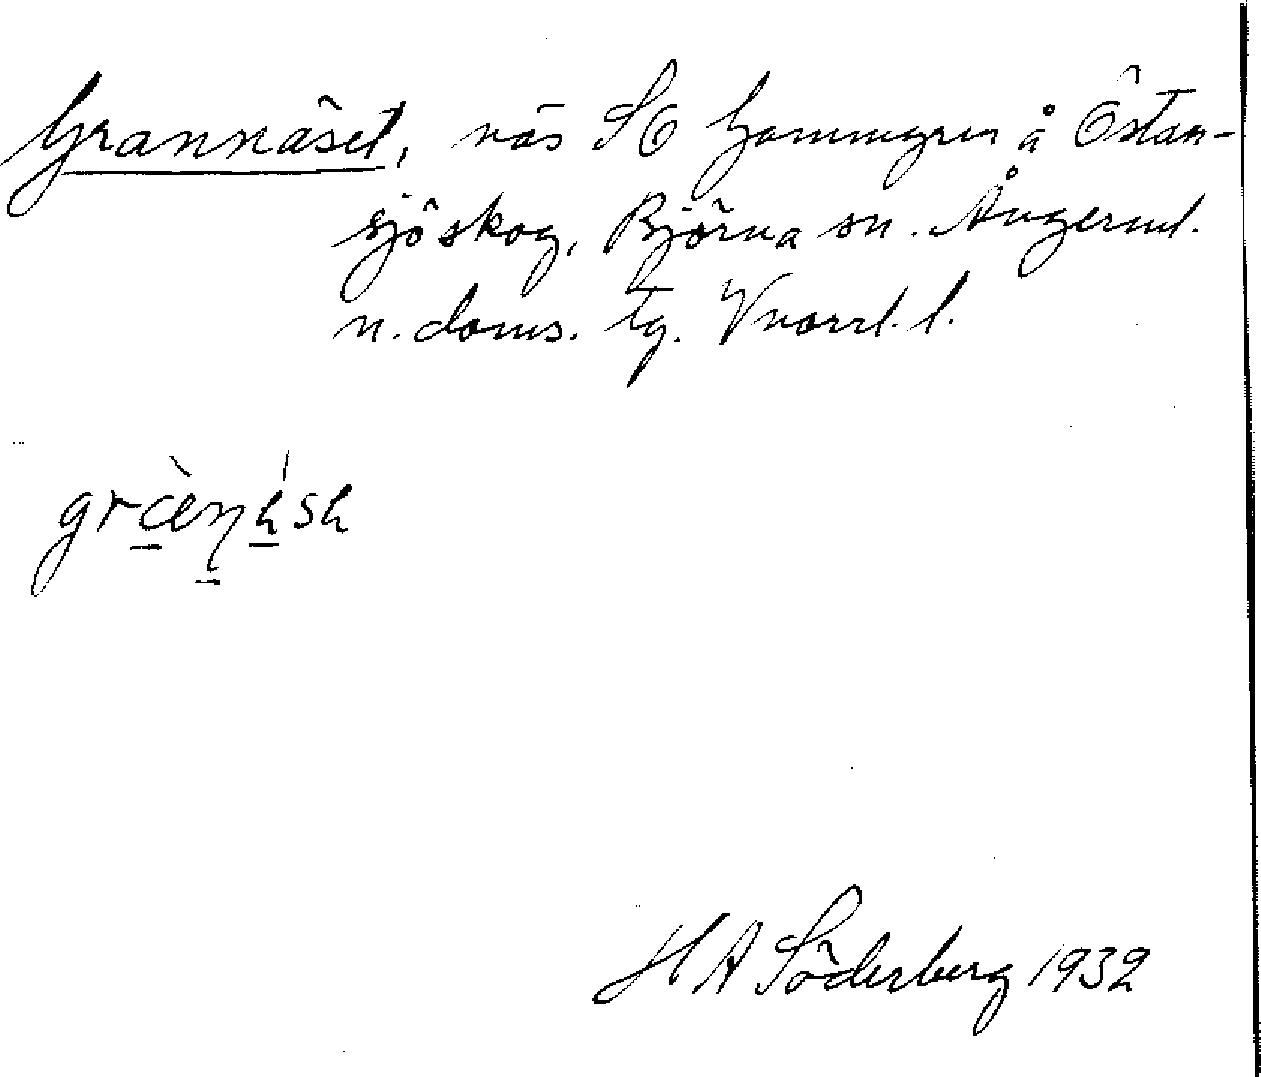 Grannäset, näs SO Hemmyren å Östan-
sjö skog, Björna sn. Ångerml.
n. doms. tg. Vnorrl. l.
H A Söderberg 1932